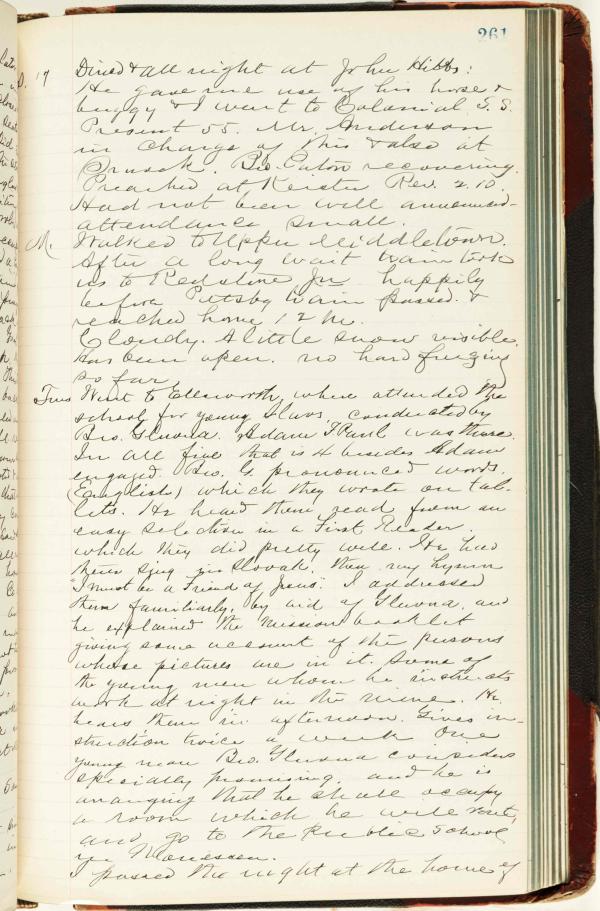 261
D. 17 Dined & all night at John Hibbs:
He gave me use of his horse &
buggy & I went to Colonial S.S.
Present 55. Mr. Anderson
in charge of this & also at
Orusok. Bro. Eaton recovering.
Preached at Keister Rev. 2.10.
Had not been well announced-
attendance small.
M. Walked to Upper Middletown.
After a long wait train took
us to Redstone Jn. happily
before Pittsbg train passed. &
reached home 12 M.
Cloudy. A little snow visible.
Has been open. no hard freezing
so far
Tues Went to Ellsworth, where attended the
school for young Slavs, conducted by
Bro. Gluvna. Adam & Paul was there.
In all five that is 4 besides Adam
engaged. Bro. G. pronounced words
(English) which they wrote on tab-
lets. He heard them read from an
easy selection in a First Reader.
which they did pretty well. He had
them sing in Slovak, then my hymn
"I must be a Friend of Jesus." I addressed
them familiarly, by aid of Gluvna, and
he explained the Mission booklet
giving some account of the persons
whose pictures are in it. Some of
the young men whom he instructs
work at night in the mine. He
hears them in afternoon. Gives in-
struction twice a week One
young man Bro. Gluvna considers
specially promising, and he is
arranging that he shall occupy
a room which he will rent,
and go to the Public School
in Monessen.
I passed the night at the home of